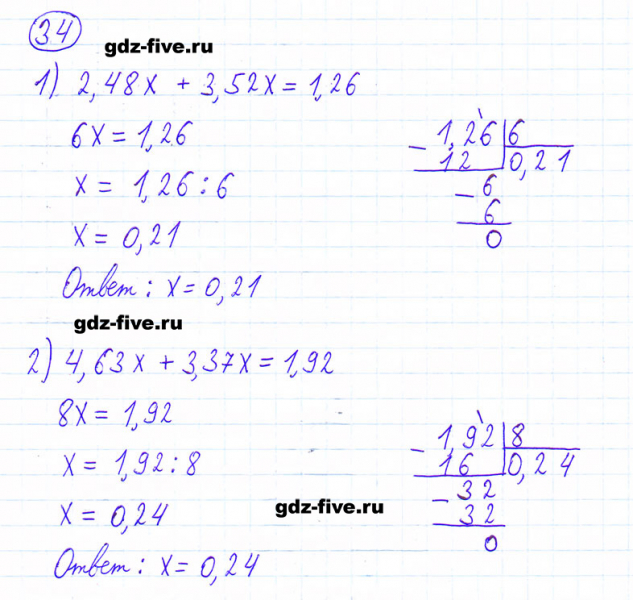 34
gdz-five.ru
1) 2,48x + 3,52x = 1,26
6x = 1,26
x = 1,26 : 6
x = 0,21
Ответ: x = 0,21
1,26 6
- 12 0,21
- 6
6
0
gdz-five.ru
2) 4,63x + 3,37x = 1,92
8x = 1,92
x = 1,92 : 8
x = 0,24
Ответ: x = 0,24
1,92 8
- 16 0,24
- 32
32
0
gdz-five.ru